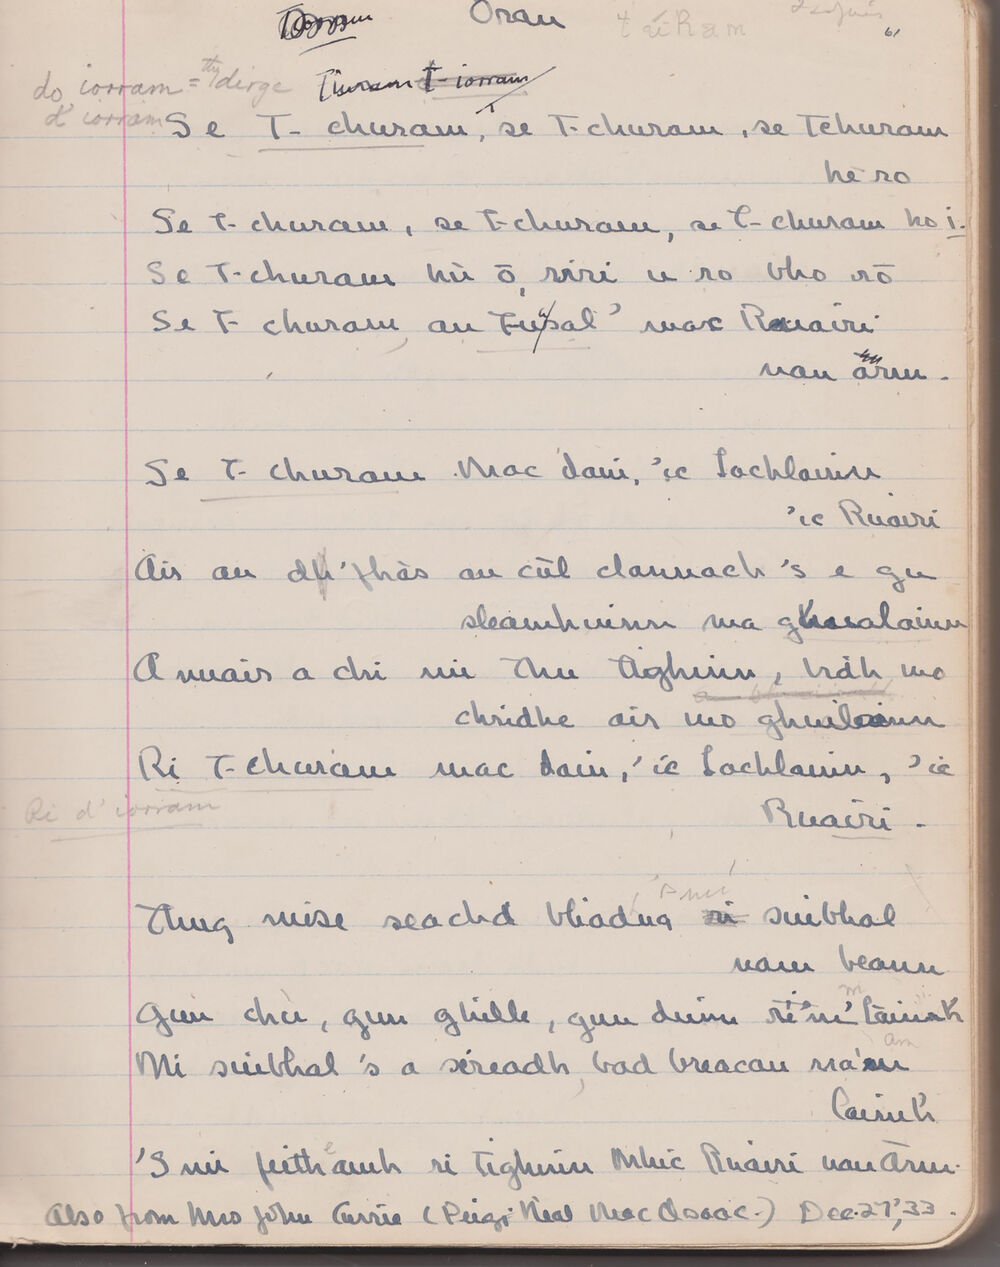 Oran
61
do iorram = thy dirge
Tiuram T-iorram
d'iorram
Se T-churam, se T-churam, se Tchuram
hè ro
Se T-churam, se T-churam, se T-churam ho i.
Se T-churam hù ō, siri u ro bho rō
Se T-churam an t-uasal' mac Ruairi
nan ārm.
Se T-churam Mac Dain, 'ic Lochlainn
'ic Ruairi
Air an dh'fhàs an cūl clannach 's e gu
sleamhuinn ma ghualainn
A nuair a chi mi thu tighinn, bidh mo
chridhe air mo ghuilainn
Ri T-churam mac Dain, 'ic Lochlainn, 'ic
Ruairi.
Ri d'iorram
Thug mise seachd bliadna ri suibhal
'S mi
nam beann
Gun chu, gun ghille, gun duine
Mi suibhal 's a sireadh bad breacan
am
'S mi feitheamh ri tighinn Mhic Ruairi nan Ārm.
Also from Mrs John Currie (Peigi Neal MacIsaac.) Dec. 27, '33.